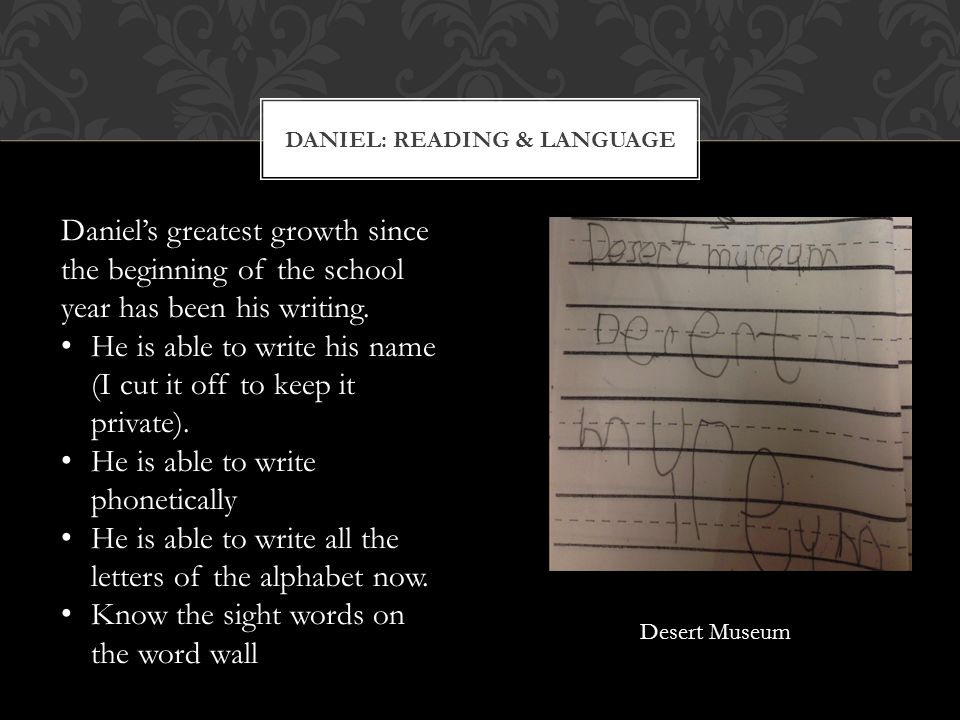 DANIEL: READING & LANGUAGE
Daniel’s greatest growth since
the beginning of the school
year has been his writing.
• He is able to write his name
(I cut it off to keep it
private).
• He is able to write
phonetically
• He is able to write all the
letters of the alphabet now.
• Know the sight words on
the word wall
Desert myseam
Desert
Desert Museum